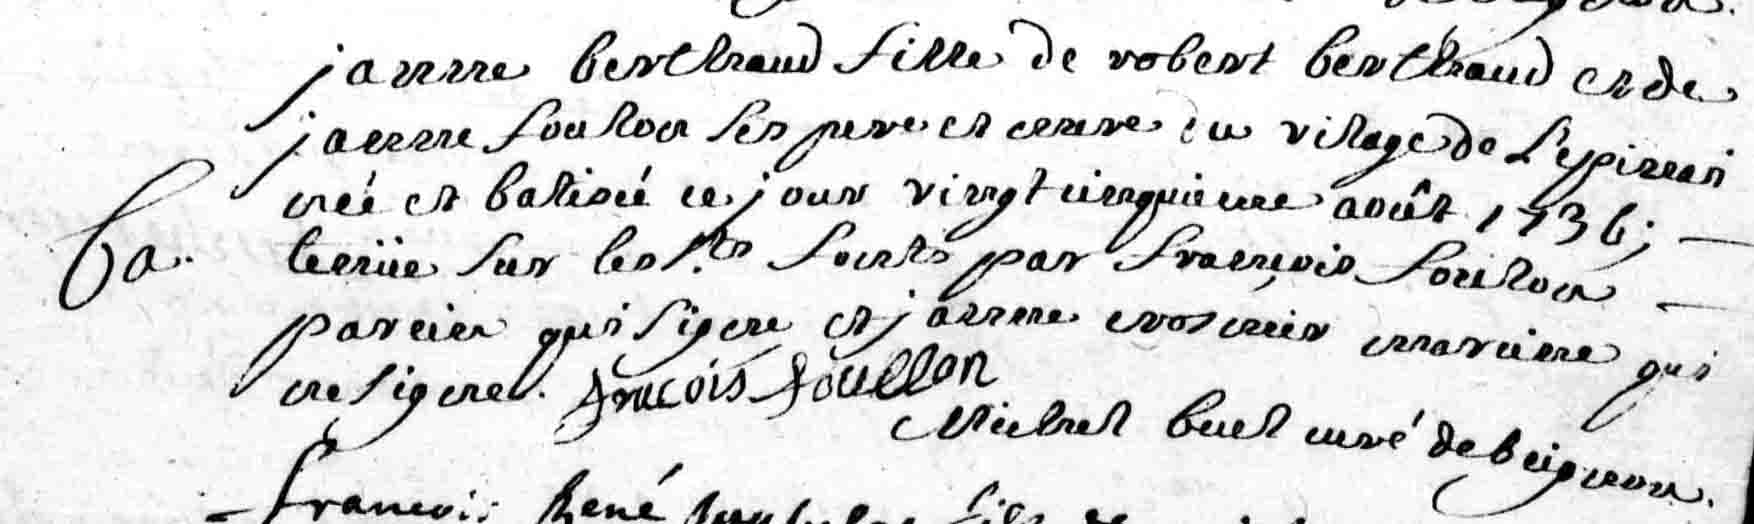 janne berthaud fille de robert berthaud et de
janne foulon ses pere et mere du vilage de L'epinean
née et batisée ce jour vingt cinquieme août 1736;
ba. tenüe sur les s.ts fonts par françois foulon
parein qui signe et janne mareine qui
ne signe. francois foullon
Michel buet curé de beignon.
francois René fils de